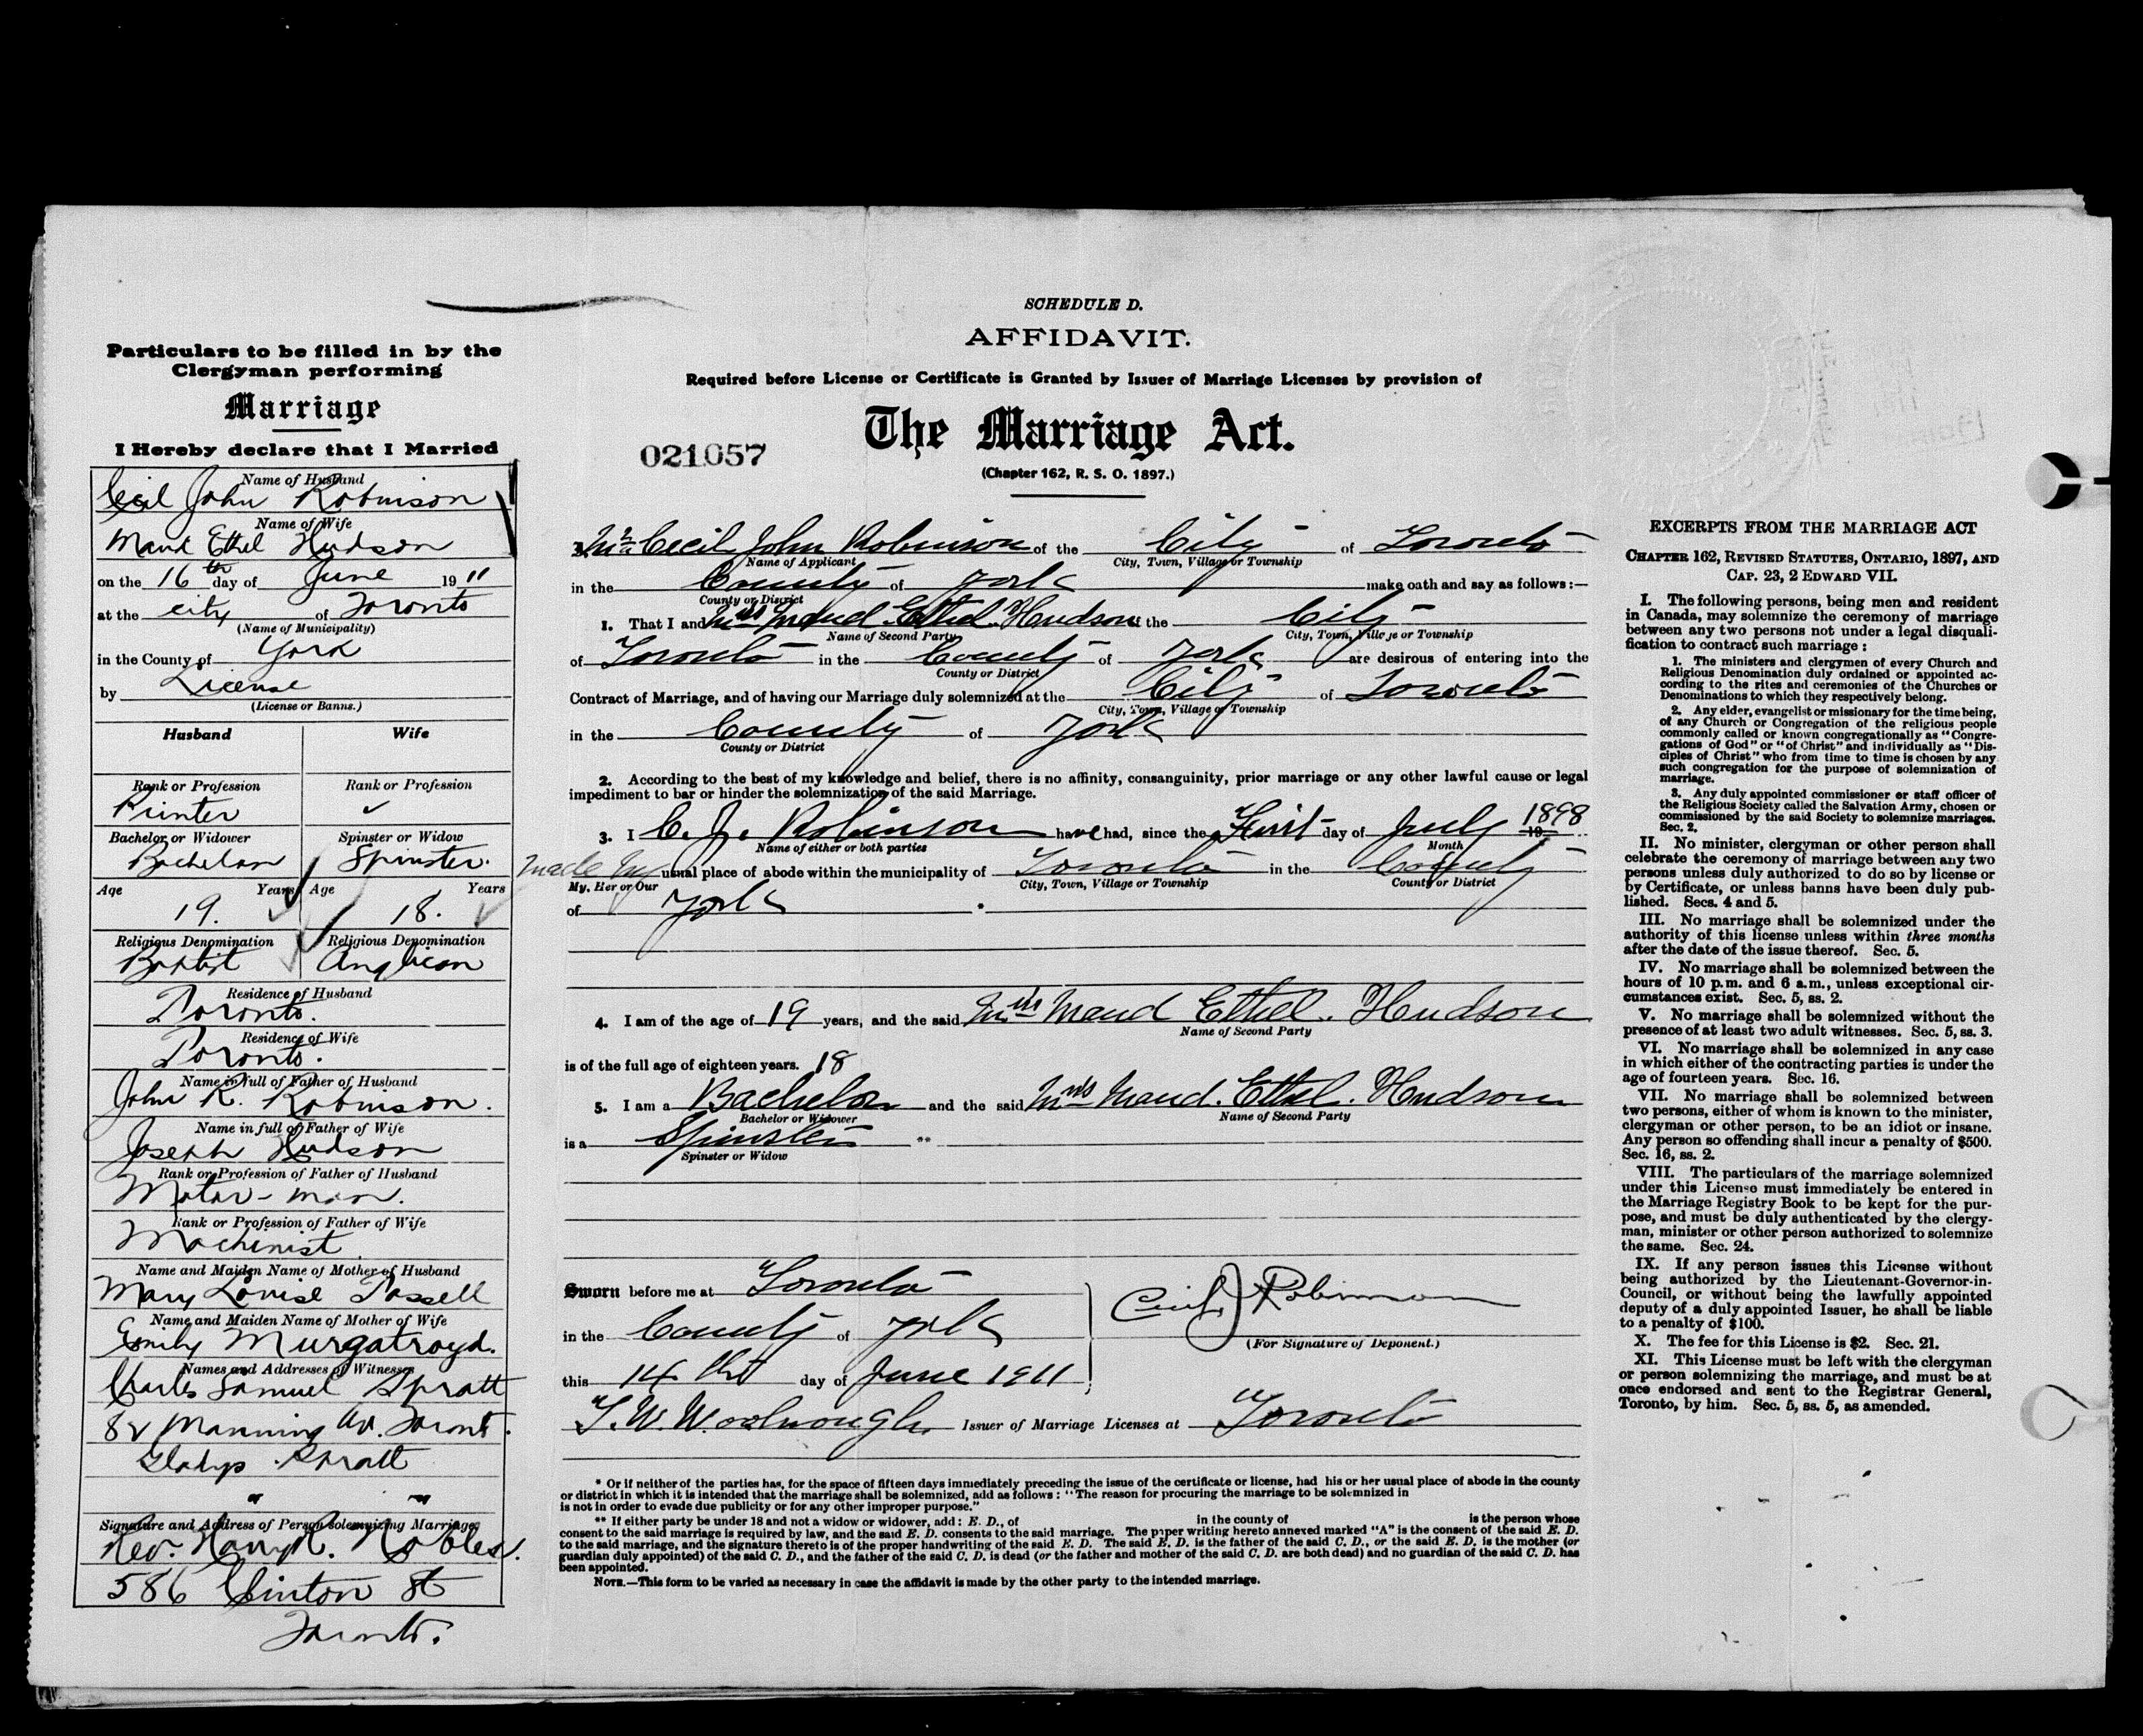 Particulars to be filled in by the
Clergyman performing
Marriage
I Hereby declare that I Married
Name of Husband
Cecil John Robinson
Name of Wife
Maud Ethel Hudson
on the 16th day of June 1911
at the city of Toronto
(Name of Municipality)
in the County of York
by License
(License or Banns.)
Husband Wife
Rank or Profession Rank or Profession
Printer ✓
Bachelor or Widower Spinster or Widow
Bachelor Spinster.
Age Years Age Years
19. 18.
Religious Denomination Religious Denomination
Baptist Anglican
Residence of Husband
Toronto.
Residence of Wife
Toronto.
Name in full of Father of Husband
John R. Robinson.
Name in full of Father of Wife
Joseph Hudson
Rank or Profession of Father of Husband
Motor-man.
Rank or Profession of Father of Wife
Machenist
Name and Maiden Name of Mother of Husband
Mary Louise Passell
Name and Maiden Name of Mother of Wife
Emily Murgatroyd.
Names and Addresses of Witnesses
Charles Samuel Spratt
82 Manning Av. Toront.
Gladys Spratt
" "
Signature and Address of Person solemnizing Marriage
Rev. Harry R. Nobles.
586 Clinton St
Toronto.
SCHEDULE D.
AFFIDAVIT.
Required before License or Certificate is Granted by Issuer of Marriage Licenses by provision of
The Marriage Act.
021057
(Chapter 162, R. S. O. 1897.)
I, Mr Cecil John Robinson of the City of Toronto
Name of Applicant City, Town, Village or Township
in the County of York make oath and say as follows:—
County or District
1. That I and Miss Maud Ethel Hudson of the City
Name of Second Party City, Town, Village or Township
of Toronto in the County of York are desirous of entering into the
County or District
Contract of Marriage, and of having our Marriage duly solemnized at the City of Toronto
City, Town, Village or Township
in the County of York
County or District
2. According to the best of my knowledge and belief, there is no affinity, consanguinity, prior marriage or any other lawful cause or legal
impediment to bar or hinder the solemnization of the said Marriage.
3. I C. J. Robinson have had, since the First day of July 1898 19
Name of either or both parties Month
made my usual place of abode within the municipality of Toronto in the County
My, Her or Our City, Town, Village or Township County or District
of York *
4. I am of the age of 19 years, and the said Miss Maud Ethel. Hudson
Name of Second Party
is of the full age of eighteen years. 18
5. I am a Bachelor and the said Miss Maud. Ethel. Hudson
Bachelor or Widower Name of Second Party
is a Spinster **
Spinster or Widow
Sworn before me at Toronto
in the County of York
Cecil J Robinson
(For Signature of Deponent.)
this 14th day of June 1911
T. W. Woolnough Issuer of Marriage Licenses at Toronto
* Or if neither of the parties has, for the space of fifteen days immediately preceding the issue of the certificate or license, had his or her usual place of abode in the county
or district in which it is intended that the marriage shall be solemnized, add as follows: "The reason for procuring the marriage to be solemnized in
is not in order to evade due publicity or for any other improper purpose."
** If either party be under 18 and not a widow or widower, add: E. D., of in the county of is the person whose
consent to the said marriage is required by law, and the said E. D. consents to the said marriage. The paper writing hereto annexed marked "A" is the consent of the said E. D.
to the said marriage, and the signature thereto is of the proper handwriting of the said E. D. The said E. D. is the father of the said C. D., or the said E. D. is the mother (or
guardian duly appointed) of the said C. D., and the father of the said C. D. is dead (or the father and mother of the said C. D. are both dead) and no guardian of the said C. D. has
been appointed.
NOTE.—This form to be varied as necessary in case the affidavit is made by the other party to the intended marriage.
EXCERPTS FROM THE MARRIAGE ACT
CHAPTER 162, REVISED STATUTES, ONTARIO, 1897, AND
CAP. 23, 2 EDWARD VII.
I. The following persons, being men and resident
in Canada, may solemnize the ceremony of marriage
between any two persons not under a legal disquali-
fication to contract such marriage:
1. The ministers and clergymen of every Church and
Religious Denomination duly ordained or appointed ac-
cording to the rites and ceremonies of the Churches or
Denominations to which they respectively belong.
2. Any elder, evangelist or missionary for the time being,
of any Church or Congregation of the religious people
commonly called or known congregationally as "Congre-
gations of God" or "of Christ" and individually as "Dis-
ciples of Christ" who from time to time is chosen by any
such congregation for the purpose of solemnization of
marriage.
3. Any duly appointed commissioner or staff officer of
the Religious Society called the Salvation Army, chosen or
commissioned by the said Society to solemnize marriages.
Sec. 2.
II. No minister, clergyman or other person shall
celebrate the ceremony of marriage between any two
persons unless duly authorized to do so by license or
by Certificate, or unless banns have been duly pub-
lished. Secs. 4 and 5.
III. No marriage shall be solemnized under the
authority of this license unless within three months
after the date of the issue thereof. Sec. 5.
IV. No marriage shall be solemnized between the
hours of 10 p.m. and 6 a.m., unless exceptional cir-
cumstances exist. Sec. 5, ss. 2.
V. No marriage shall be solemnized without the
presence of at least two adult witnesses. Sec. 5, ss. 3.
VI. No marriage shall be solemnized in any case
in which either of the contracting parties is under the
age of fourteen years. Sec. 16.
VII. No marriage shall be solemnized between
two persons, either of whom is known to the minister,
clergyman or other person, to be an idiot or insane.
Any person so offending shall incur a penalty of $500.
Sec. 16, ss. 2.
VIII. The particulars of the marriage solemnized
under this License must immediately be entered in
the Marriage Registry Book to be kept for the pur-
pose, and must be duly authenticated by the clergy-
man, minister or other person authorized to solemnize
the same. Sec. 24.
IX. If any person issues this License without
being authorized by the Lieutenant-Governor-in-
Council, or without being the lawfully appointed
deputy of a duly appointed Issuer, he shall be liable
to a penalty of $100.
X. The fee for this License is $2. Sec. 21.
XI. This License must be left with the clergyman
or person solemnizing the marriage, and must be at
once endorsed and sent to the Registrar General,
Toronto, by him. Sec. 5, ss. 5, as amended.